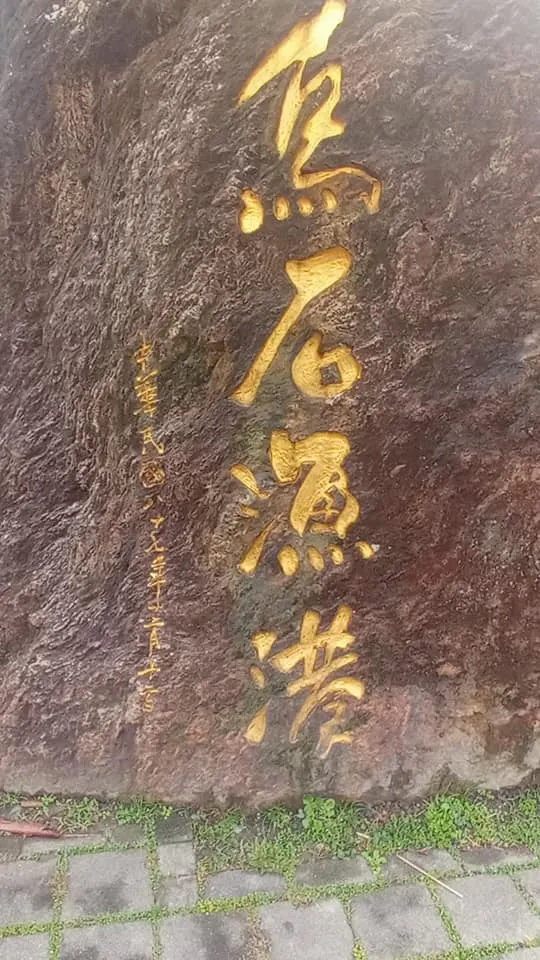 烏石漁港
中華民國八十七年六月十二日